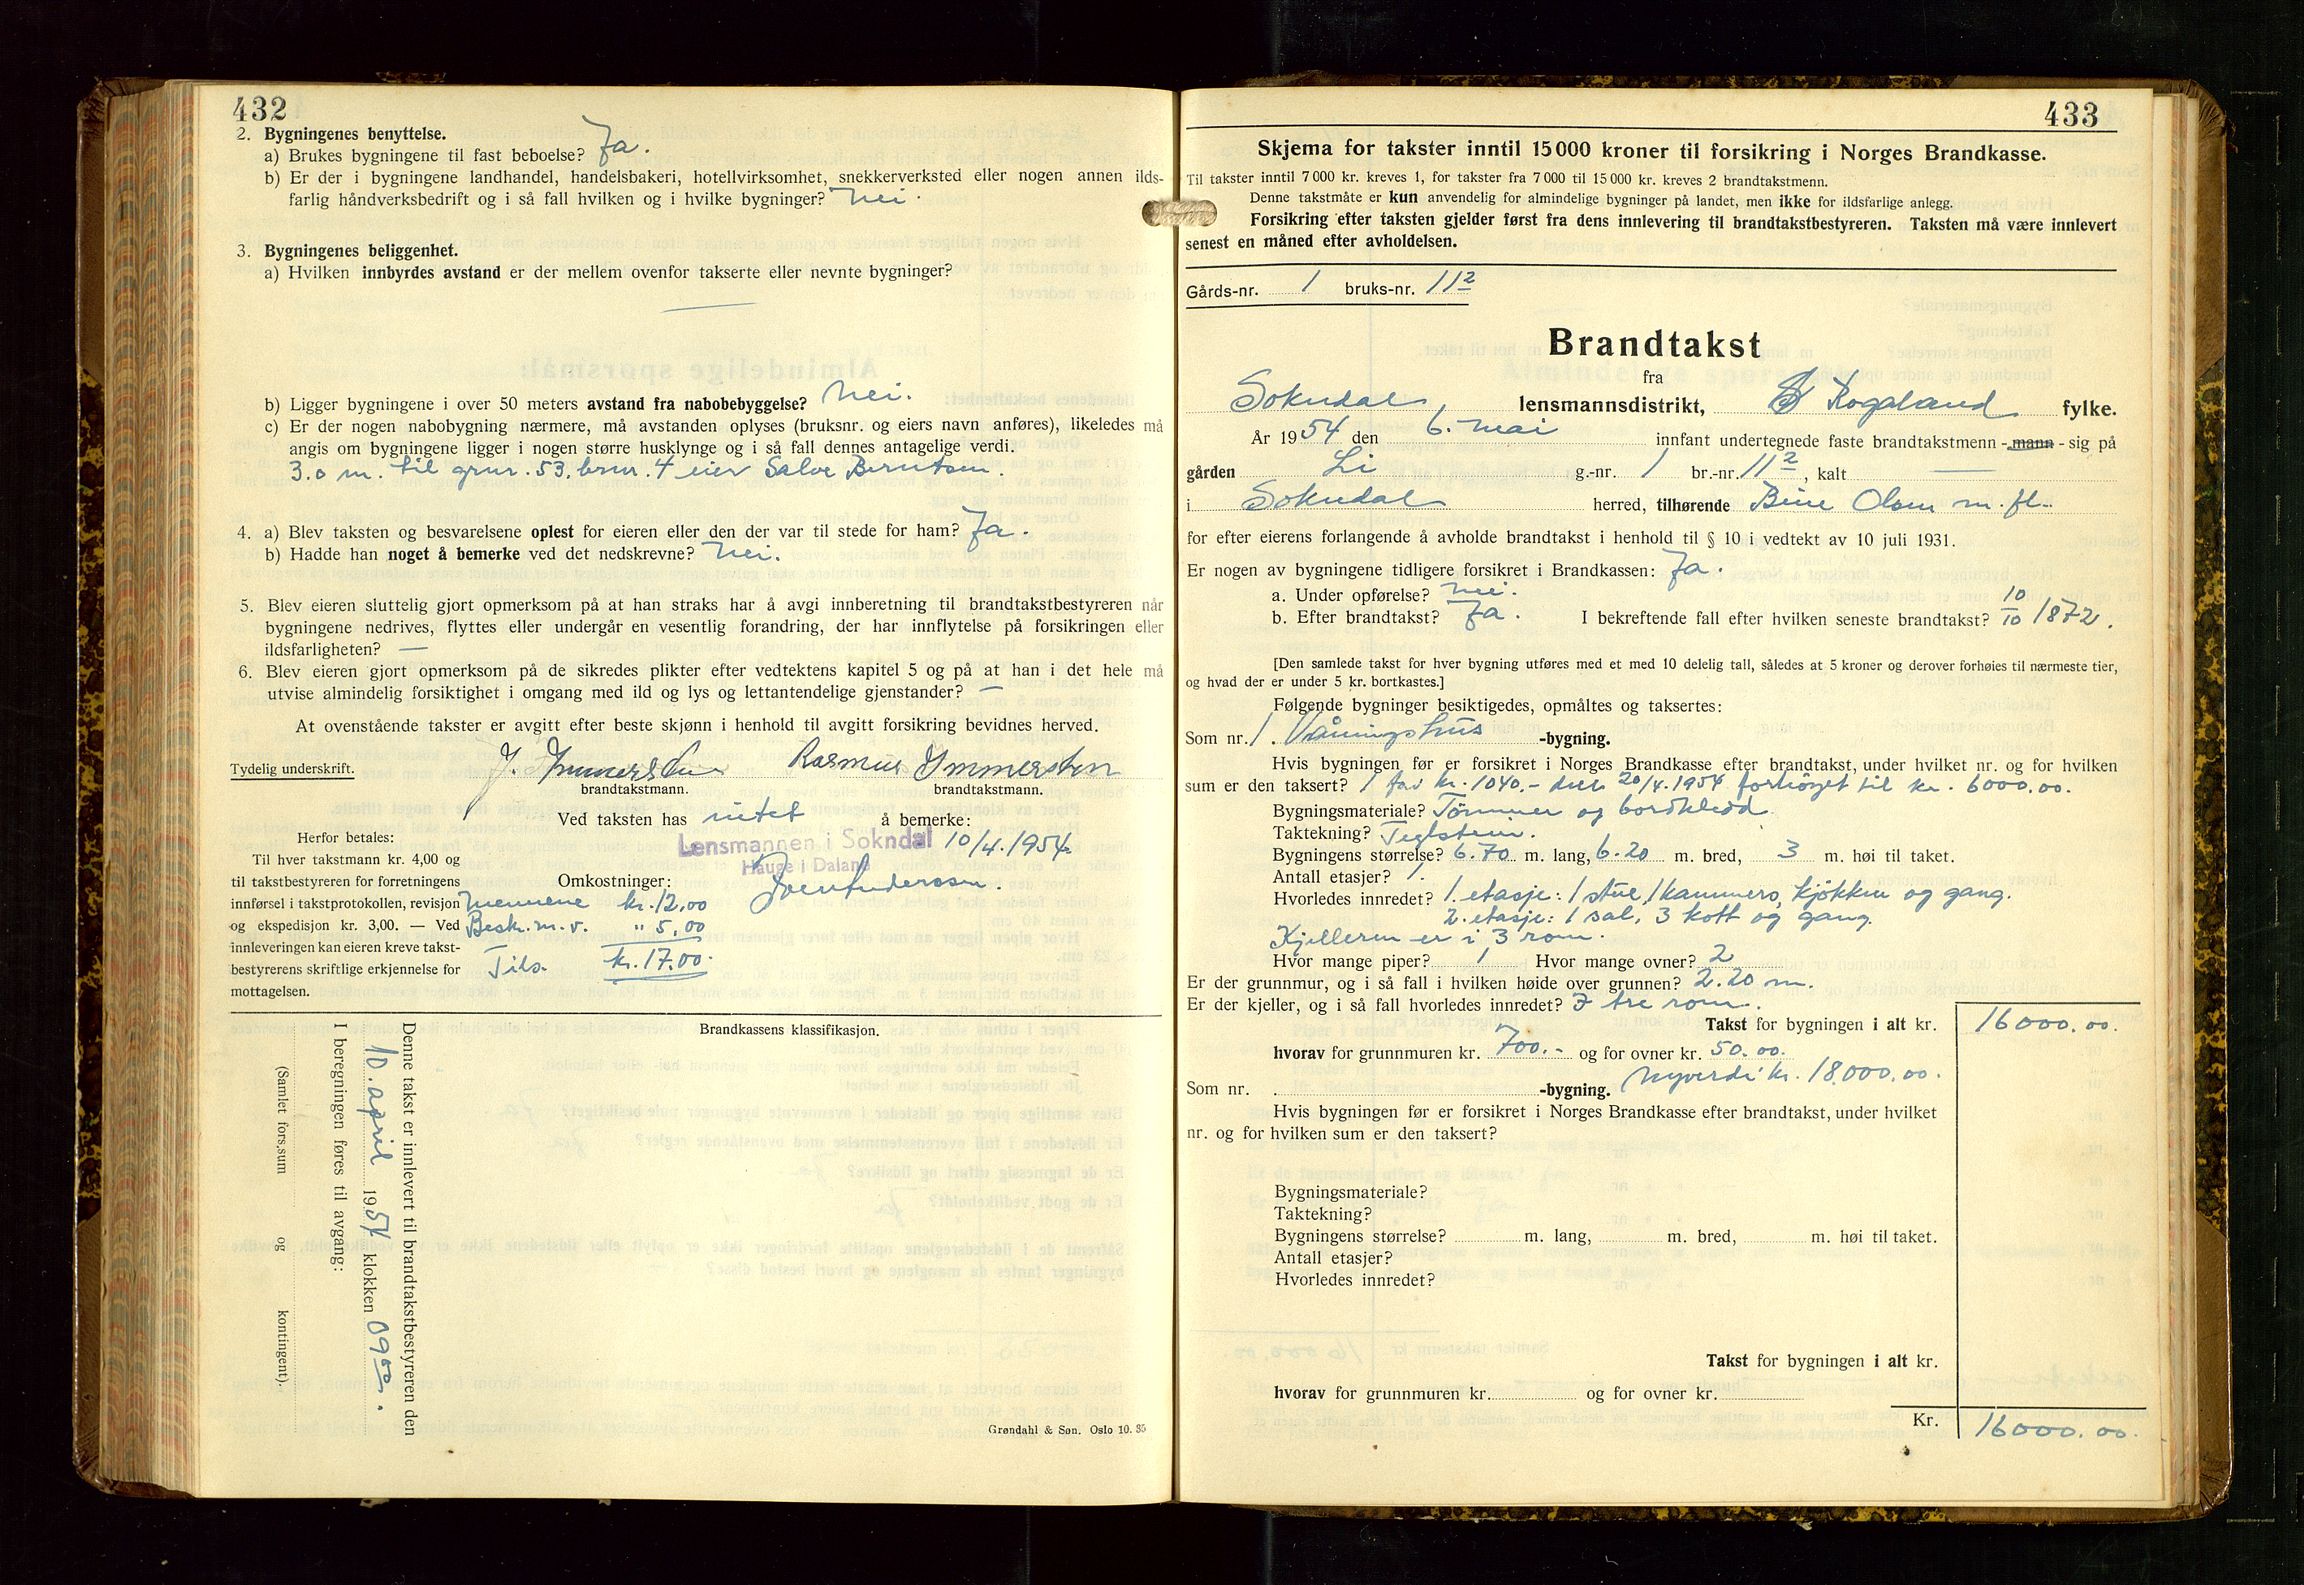 432
2. Bygningenes benyttelse.
a) Brukes bygningene til fast beboelse? Ja.
b) Er der i bygningene landhandel, handelsbakeri, hotellvirksomhet, snekkerverksted eller nogen annen ilds-
farlig håndverksbedrift og i så fall hvilken og i hvilke bygninger? Nei.
3. Bygningenes beliggenhet.
a) Hvilken innbyrdes avstand er der mellem ovenfor takserte eller nevnte bygninger?
b) Ligger bygningene i over 50 meters avstand fra nabobebyggelse? Nei.
c) Er der nogen nabobygning nærmere, må avstanden oplyses (bruksnr. og eiers navn anføres), likeledes må
angis om bygningene ligger i nogen større husklynge og i så fall dennes antagelige verdi.
3.0 m. til grnr. 53. brnr. 4 eier Salve Berntsen.
4. a) Blev taksten og besvarelsene oplest for eieren eller den der var til stede for ham? Ja.
b) Hadde han noget å bemerke ved det nedskrevne? Nei.
5. Blev eieren sluttelig gjort opmerksom på at han straks har å avgi innberetning til brandtakstbestyreren når
bygningene nedrives, flyttes eller undergår en vesentlig forandring, der har innflytelse på forsikringen eller
ildsfarligheten? —
6. Blev eieren gjort opmerksom på de sikredes plikter efter vedtektens kapitel 5 og på at han i det hele må
utvise almindelig forsiktighet i omgang med ild og lys og lettantendelige gjenstander? —
At ovenstående takster er avgitt efter beste skjønn i henhold til avgitt forsikring bevidnes herved.
Tydelig underskrift. J. Immerstein Rasmus Immerstein
brandtakstmann. brandtakstmann.
Ved taksten has intet å bemerke:
Herfor betales:
Til hver takstmann kr. 4,00 og
til takstbestyreren for forretningens
innførsel i takstprotokollen, revisjon
og ekspedisjon kr. 3,00. — Ved
innleveringen kan eieren kreve takst-
bestyrerens skriftlige erkjennelse for
mottagelsen.
Lensmannen i Sokndal 10/4.1954
Hauge i Dalane
Omkostninger:
Mennene kr. 12,00
Besk. m.v. " 5,00
Tils. kr. 17.00.
Brandkassens klassifikasjon.
Denne takst er innlevert til brandtakstbestyreren den
10. april 1954 klokken 09 00.
I beregningen føres til avgang:
(Samlet fors.sum og kontingent).
Grøndahl & Søn. Oslo 10. 35
433
Skjema for takster inntil 15 000 kroner til forsikring i Norges Brandkasse.
Til takster inntil 7 000 kr. kreves 1, for takster fra 7 000 til 15 000 kr. kreves 2 brandtakstmenn.
Denne takstmåte er kun anvendelig for almindelige bygninger på landet, men ikke for ildsfarlige anlegg.
Forsikring efter taksten gjelder først fra dens innlevering til brandtakstbestyreren. Taksten må være innlevert
senest en måned efter avholdelsen.
Gårds-nr. 1 bruks-nr. 11 2
Brandtakst
fra
Sokndal lensmannsdistrikt, Rogaland fylke.
År 1954 den 6. mai innfant undertegnede faste brandtakstmenn - mann - sig på
gården Li g.-nr. 1 br.-nr. 11 2, kalt —
i Sokndal herred, tilhørende Bine Olsen m. fl.
for efter eierens forlangende å avholde brandtakst i henhold til § 10 i vedtekt av 10 juli 1931.
Er nogen av bygningene tidligere forsikret i Brandkassen: Ja.
a. Under opførelse? Nei.
b. Efter brandtakst? Ja. I bekreftende fall efter hvilken seneste brandtakst? 10/10 1872.
[Den samlede takst for hver bygning utføres med et med 10 delelig tall, således at 5 kroner og derover forhøies til nærmeste tier,
og hvad der er under 5 kr. bortkastes.]
Følgende bygninger besiktigedes, opmåltes og taksertes:
Som nr. 1. Våningshus -bygning.
Hvis bygningen før er forsikret i Norges Brandkasse efter brandtakst, under hvilket nr. og for hvilken
sum er den taksert? 1 for kr. 1040.- den 20/4.1954 forhöyet til kr. 6000.00.
Bygningsmateriale? Tömmer og bordkledd
Taktekning? Teglstein.
Bygningens størrelse? 6.70 m. lang, 6.20 m. bred, 3 m. høi til taket.
Antall etasjer? 1.
Hvorledes innredet? 1. etasje: 1 stue, 1 kammers, kjökken og gang.
2. etasje: 1 sal, 3 kott og gang.
Kjelleren er i 3 rom.
Hvor mange piper? 1 Hvor mange ovner? 2
Er der grunnmur, og i så fall i hvilken høide over grunnen? 2.20 m.
Er der kjeller, og i så fall hvorledes innredet? I tre rom.
Takst for bygningen i alt kr. 16000.00.
hvorav for grunnmuren kr. 700.- og for ovner kr. 50.00.
Som nr. -bygning. Nyverdi kr. 18.000.00.
Hvis bygningen før er forsikret i Norges Brandkasse efter brandtakst, under hvilket
nr. og for hvilken sum er den taksert?
Bygningsmateriale?
Taktekning?
Bygningens størrelse? m. lang, m. bred, m. høi til taket.
Antall etasjer?
Hvorledes innredet?
Takst for bygningen i alt kr.
hvorav for grunnmuren kr. og for ovner kr.
Kr. 16000.00.